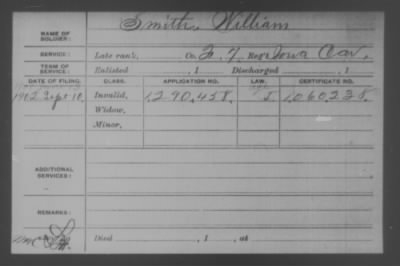 NAME OF SOLDIER: Smith, William
SERVICE: Late rank, Co. 7, Reg't Iowa Cav.
TERM OF SERVICE: Enlisted , 1 Discharged , 1
DATE OF FILING. CLASS. APPLICATION NO. LAW. CERTIFICATE NO.
1902 Sept 18 Invalid, 1,290,458. 1,060,238.
Widow,
Minor,
ADDITIONAL SERVICES:
REMARKS:
Died , 1 , at